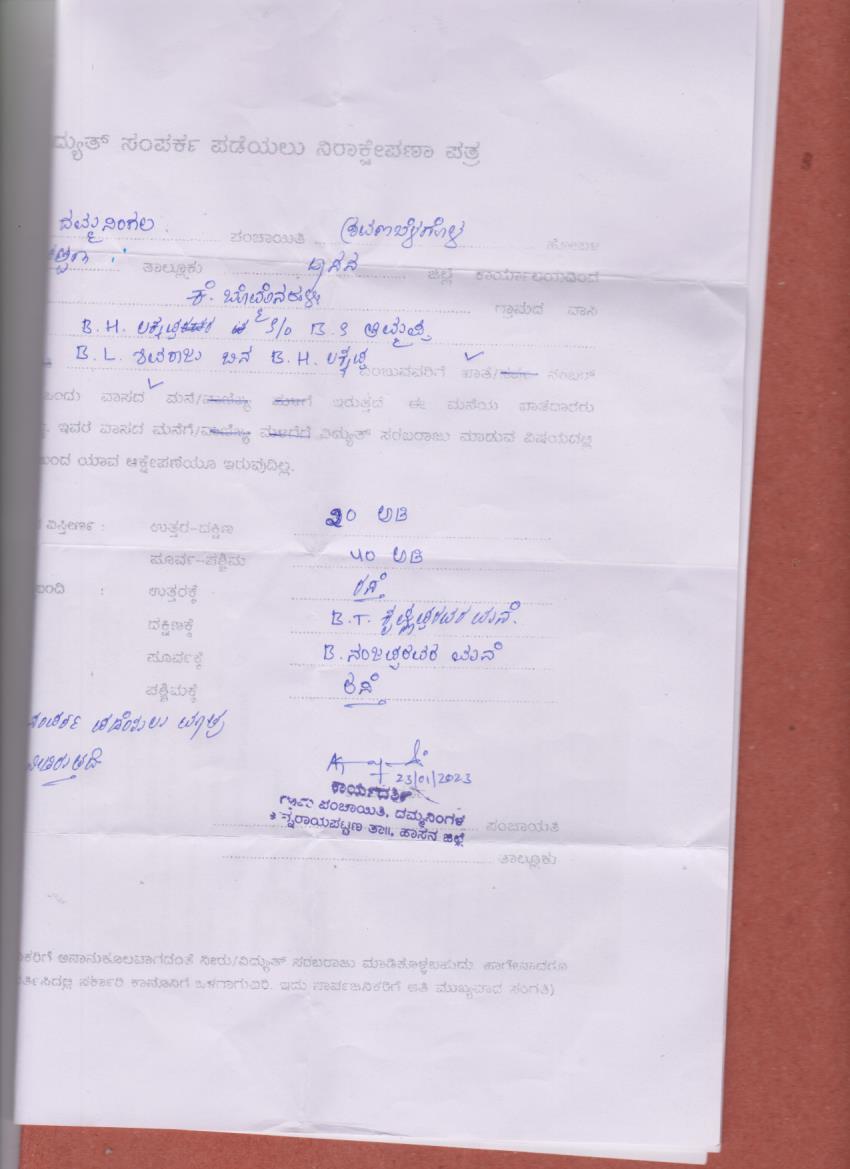 ದ್ಯುತ್ ಸಂಪರ್ಕ ಪಡೆಯಲು ನಿರಾಕ್ಷೇಪಣಾ ಪತ್ರ
ದಮ್ಮನಿಂಗಲ ಪಂಚಾಯಿತಿ ಶ್ರವಣಬೆಳಗೊಳ ಹೋಬಳಿ
ತಾಲ್ಲೂಕು ಹಾಸನ ಜಿಲ್ಲೆ ಕಾರ್ಯಾಲಯದಿಂದ
ಕೆ. ಗ್ರಾಮದ ವಾಸಿ
B. H. S/o B. S
B. L. ಶಿವರಾಜು ಬಿನ B. H. ಎಂಬುವವರಿಗೆ ಖಾತೆ/ ನಂಬರ್
ಒಂದು ವಾಸದ ಮನೆ/ ಇರುತ್ತದೆ ಈ ಮನೆಯ ಖಾತೆದಾರರು
ಇವರ ವಾಸದ ಮನೆಗೆ/ ವಿದ್ಯುತ್ ಸರಬರಾಜು ಮಾಡುವ ವಿಷಯದಲ್ಲಿ
ಯಾವ ಆಕ್ಷೇಪಣೆಯೂ ಇರುವುದಿಲ್ಲ.
ವಿಸ್ತೀರ್ಣ : ಉತ್ತರ-ದಕ್ಷಿಣ ೨೦ ಅಡಿ
ಪೂರ್ವ-ಪಶ್ಚಿಮ ೪೦ ಅಡಿ
ಬಂದಿ : ಉತ್ತರಕ್ಕೆ ರಸ್ತೆ
ದಕ್ಷಿಣಕ್ಕೆ B.T. ಮನೆ.
ಪೂರ್ವಕ್ಕೆ B. ನಂಜಪ್ಪರವರ ಮನೆ
ಪಶ್ಚಿಮಕ್ಕೆ ರಸ್ತೆ
ಸಂಪರ್ಕ ಪಡೆಯಲು ಮಾತ್ರ
23/01/2023
ಕಾರ್ಯದರ್ಶಿ
ಗ್ರಾಮ ಪಂಚಾಯಿತಿ, ದಮ್ಮನಿಂಗಳ
ನ್ನರಾಯಪಟ್ಟಣ ತಾ||, ಹಾಸನ ಜಿಲ್ಲೆ
ಪಂಚಾಯಿತಿ
ತಾಲ್ಲೂಕು
ಕರಿಗೆ ಅನಾನುಕೂಲವಾಗದಂತೆ ನೀರು/ವಿದ್ಯುತ್ ಸರಬರಾಜು ಮಾಡಿಕೊಳ್ಳಬಹುದು.
ಸರ್ಕಾರಿ ಕಾನೂನಿಗೆ ಒಳಗಾಗುವಿರಿ. ಇದು ಸಾರ್ವಜನಿಕರಿಗೆ ಅತಿ ಮುಖ್ಯವಾದ ಸಂಗತಿ)